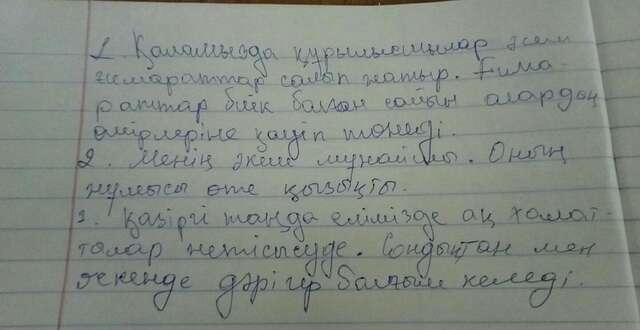 1. Қаламызда құрылысшылар әсем
ғимараттар салып жатыр. Ғима-
раттар биік болған сайын олардың
өмірлеріне қауіп төнеді.
2. Менің әкем мұнайшы. Оның
жұмысы өте қызықты.
3. Қазіргі таңда елімізде ақ халат-
талар жетіспеуде. Сондықтан мен
өскенде дәрігер болғым келеді.